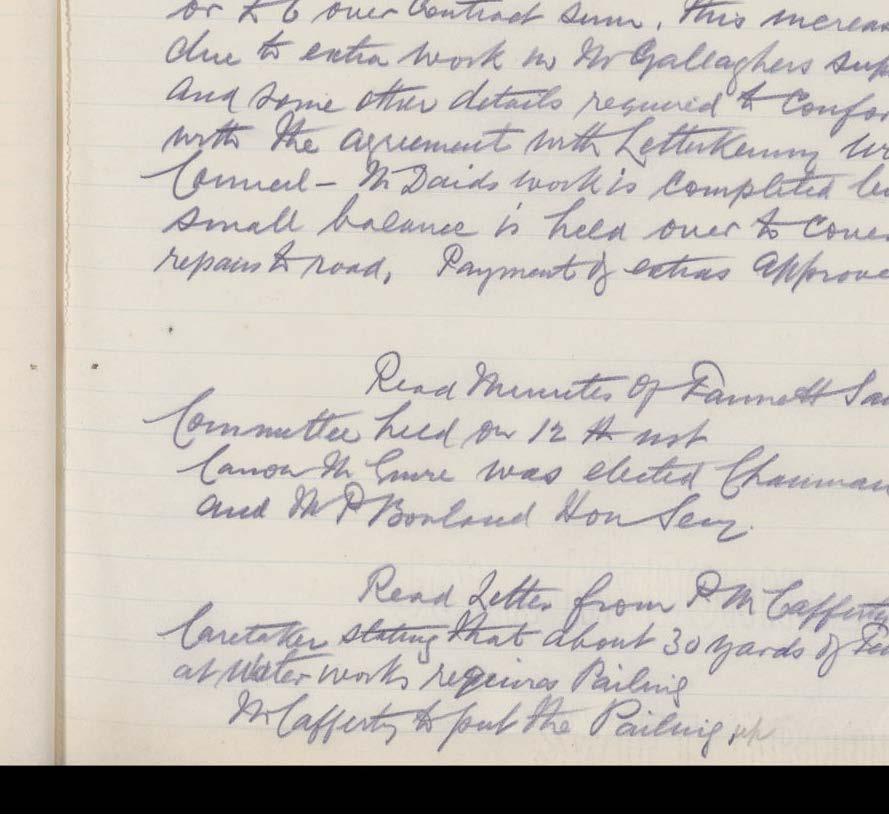 or £6 over Contract sum. This increas
due to extra work in Mr Gallaghers sup
and some other details required to Confor
with the agreement with Letterkenny
Council – McDaids work is completed bu
small balance is held over to Cover
repairs to road. Payment of extras approve
Read Minutes of Fannett Sa
Committee held on 12th inst
Canon McGuire was elected Chairman
and Mr P Borland Hon Secy.
Read Letter from P McCafferty
Caretaker stating that about 30 yards of Fe
at Water works requires Pailing
McCafferty to put the Pailing up